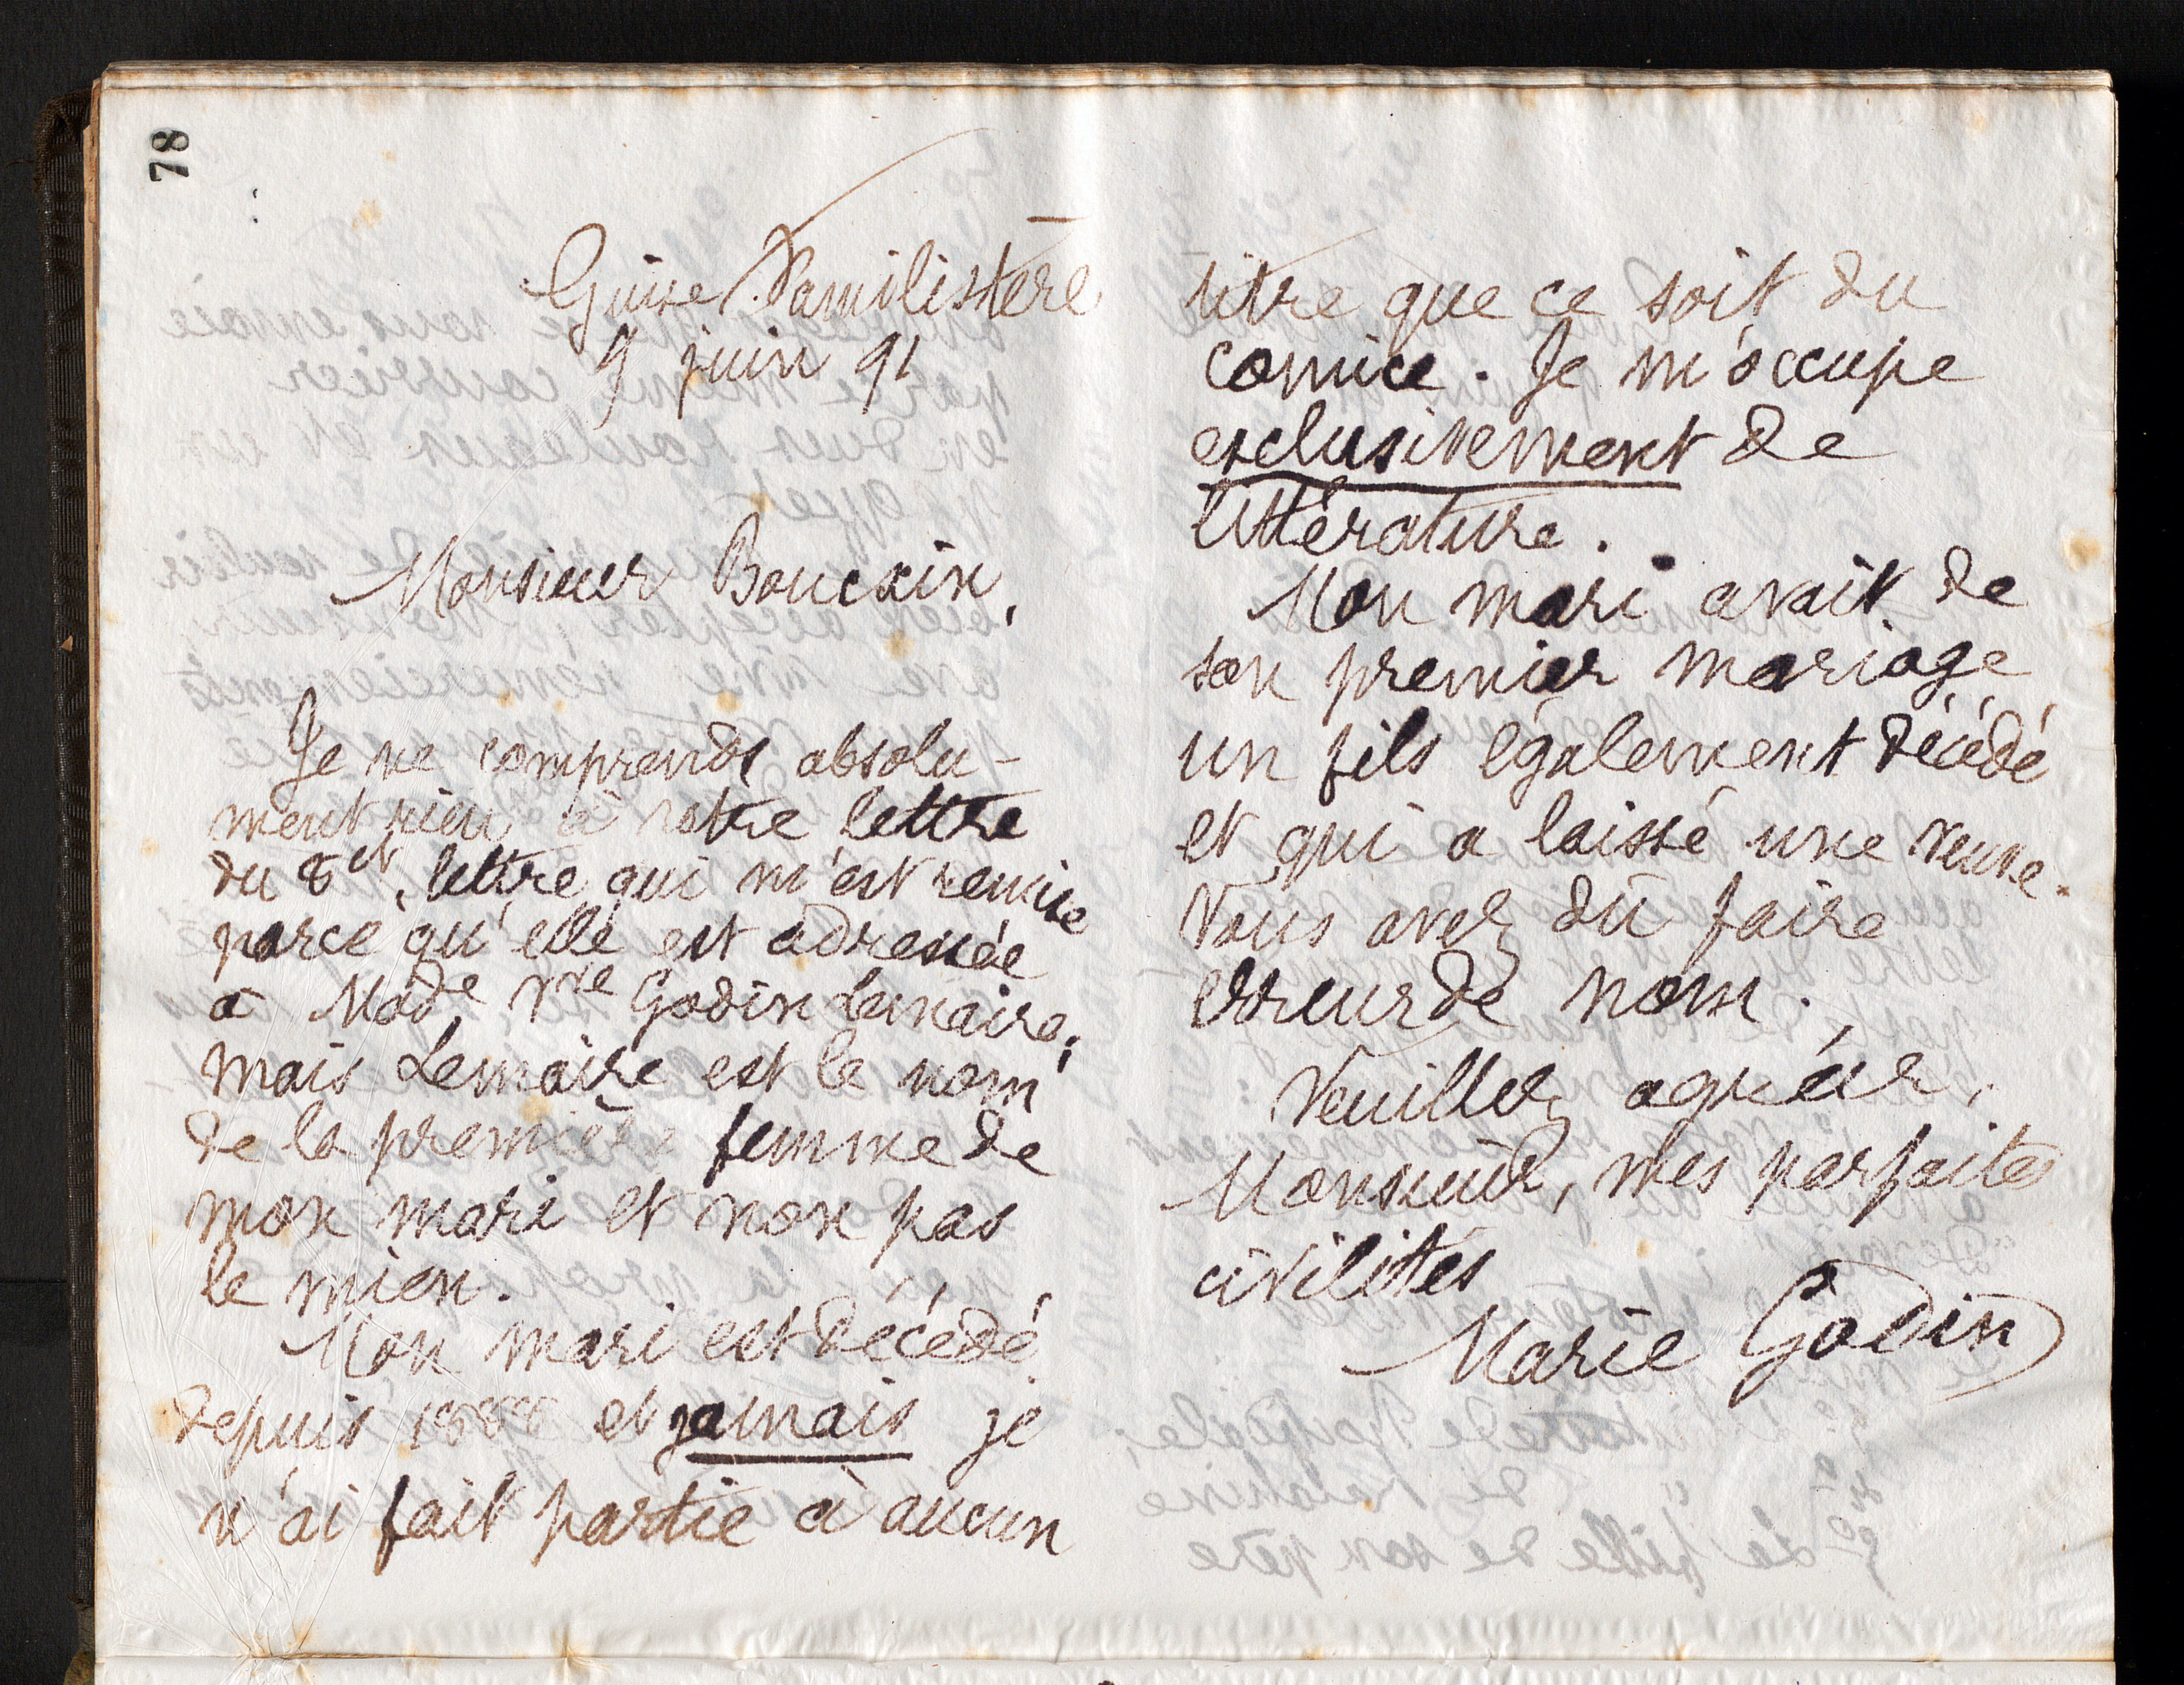 78
Guise Familistère
9 juin 91
Monsieur Boucxin,
Je ne comprends absolu-
ment rien à votre lettre
du 8 ct, lettre qui m'est remise
parce qu'elle est adressée
à Made Vve Godin Lemaire;
mais Lemaire est le nom
de la première femme de
mon mari et non pas
le mien.
Mon mari est décédé
depuis 1888 et jamais je
n'ai fait partie à aucun
titre que ce soit du
comice. Je m'occupe
exclusivement de
littérature.
Mon mari avait de
son premier mariage
un fils également décédé
et qui a laissé une veuve.
Vous avez dû faire
erreur de nom.
Veuillez agréer,
Monsieur, mes parfaites
civilités
Marie Godin